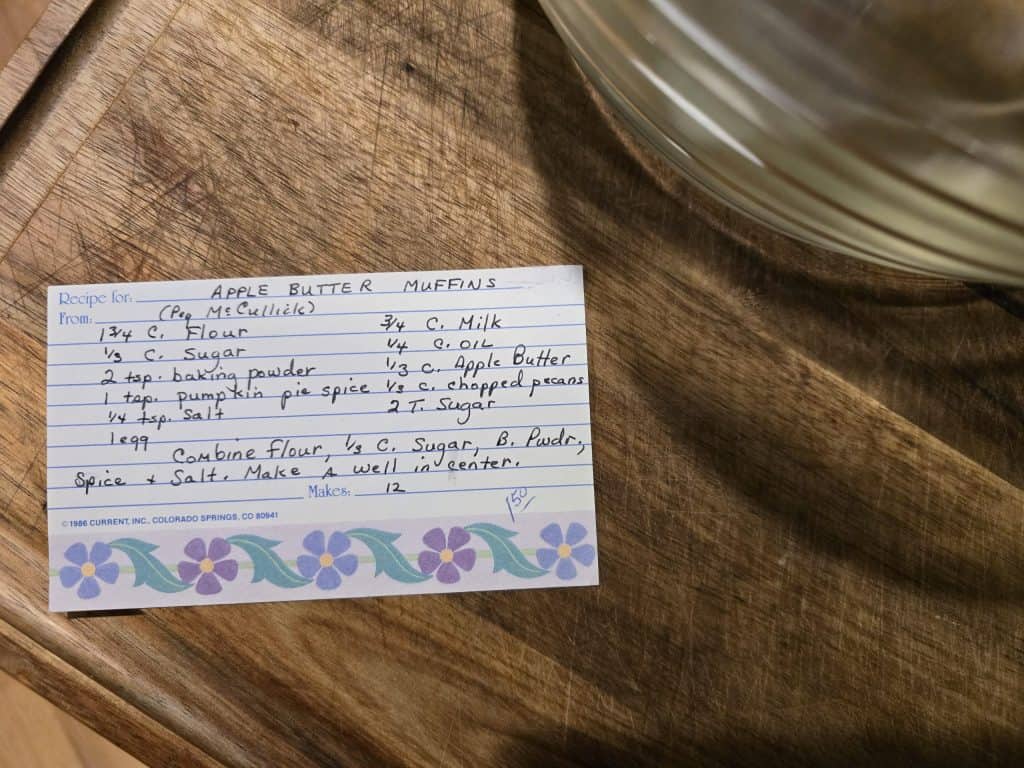 Recipe for: APPLE BUTTER MUFFINS
From: (Peg McCullick)
1 3/4 C. Flour
1/3 C. Sugar
2 tsp. baking powder
1 tsp. pumpkin pie spice
1/4 tsp. Salt
1 egg
3/4 C. Milk
1/4 C. OIL
1/3 C. Apple Butter
1/3 C. chopped pecans
2 T. Sugar
Combine flour, 1/3 C. Sugar, B. Pwdr,
Spice + Salt. Make A well in center.
Makes: 12
1 50
© 1986 CURRENT, INC., COLORADO SPRINGS, CO 80941